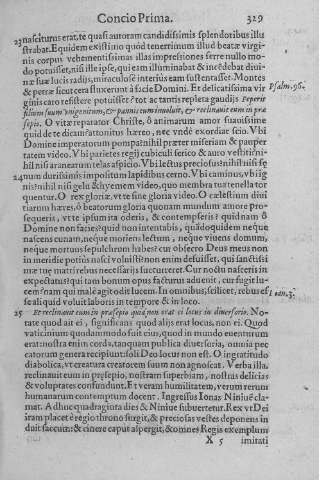 Concio Prima. 329
23 nascituruserat, te quasi autoram candidissimis splendoribus illu
strabat. Equidem existimo quòd tenerrimum illud beatæ virgi
nis corpus vehementissimas illas impressiones ferre nullo mo-
do potuisset, nisi ille ipse, qui eam illuminabat & incēdebat diui-
næ suæ lucis radijs, miraculosè interius eam sustentasset. Montes
& petræ sicut cera fluxerunt à facie Domini. Et delicatissima vir Psalm. 96.
ginis caro resistere potuisset? tot ac tantis repleta gaudijs Peperit
filium suum vnigenitum, & pannis eum inuoluit, & reclinauit eum in præ
sepio. O vitæ reparator Christe, ô animarum amor suauissime
quid de te dicam? attonitus hæreo, nec vnde exordiar scio. Vbi
Domine imperatorum pompa? nihil præter miseriam & pauper
tatem video. Vbi parietes regij cubiculi serico & auro vestiti? ni-
hil nisi aranearum telas aspicio. Vbi lectus preciosus? nihil nisi fę
24 num durissimis impositum lapidibus cerno. Vbi caminus, vbi ig
nis? nihil nisi gelu & hyemem video, quo membra tua tenella tor
quentur. O rex gloriæ, vt te sine gloria video. O cælestium diui
tiarum hæres, ô beatorum gloria quonam mundum amore pro-
sequeris, vt te ipsum ita oderis, & contempseris? quidnam ô
Domine non facies? quid non intentabis, quādoquidem neque
nascens cunam, neque moriens lectum, neque viuens domum,
neque mortuus sepulchrum habes? cur obsecro Deus meus non
in meridie potius nasci voluisti? non enim defuisset, qui sanctissi
mæ tuę matri rebus necessarijs succurreret. Cur noctu nasceris in
expectatus? qui tam bonum opus facturus aduenit, cur fugit lu-
cem? nam qui malè agit odit lucem. In omnibus, scilicet, rebus es Ioan. 3.
se ali quid voluit laboris in tempore & in loco.
25 Et reclinauit eum in præsepio quia non erat ei locus in diuersorio. No-
tate quod ait ei, significans quod alijs erat locus, non ei. Quod
vaticinium quodammodo fuit eius, quod in mundo euenturum
erat: nostra enim corda, tanquam publica diuersoria, omnia pec
catorum genera recipiunt: soli Deo locus non est. O ingratitudo
diabolica, vt creatura creatorem suum non agnoscat. Verba illa,
reclinauit eum in præsepio, nostram superbiam, nostras delicias
& voluptates confundunt. Et veram humilitatem, verum rerum
humanarum contemptum docent. Ingressus Ionas Niniuē cla-
mat. Adhuc quadraginta dies & Niniue subuertetur. Rex vt Dei
iram placet è regio throno surgit, & preciosas vestes deponens in
duit saccum: & cinere caput aspergit, & omnes Regis exemplum
X 5 imitati